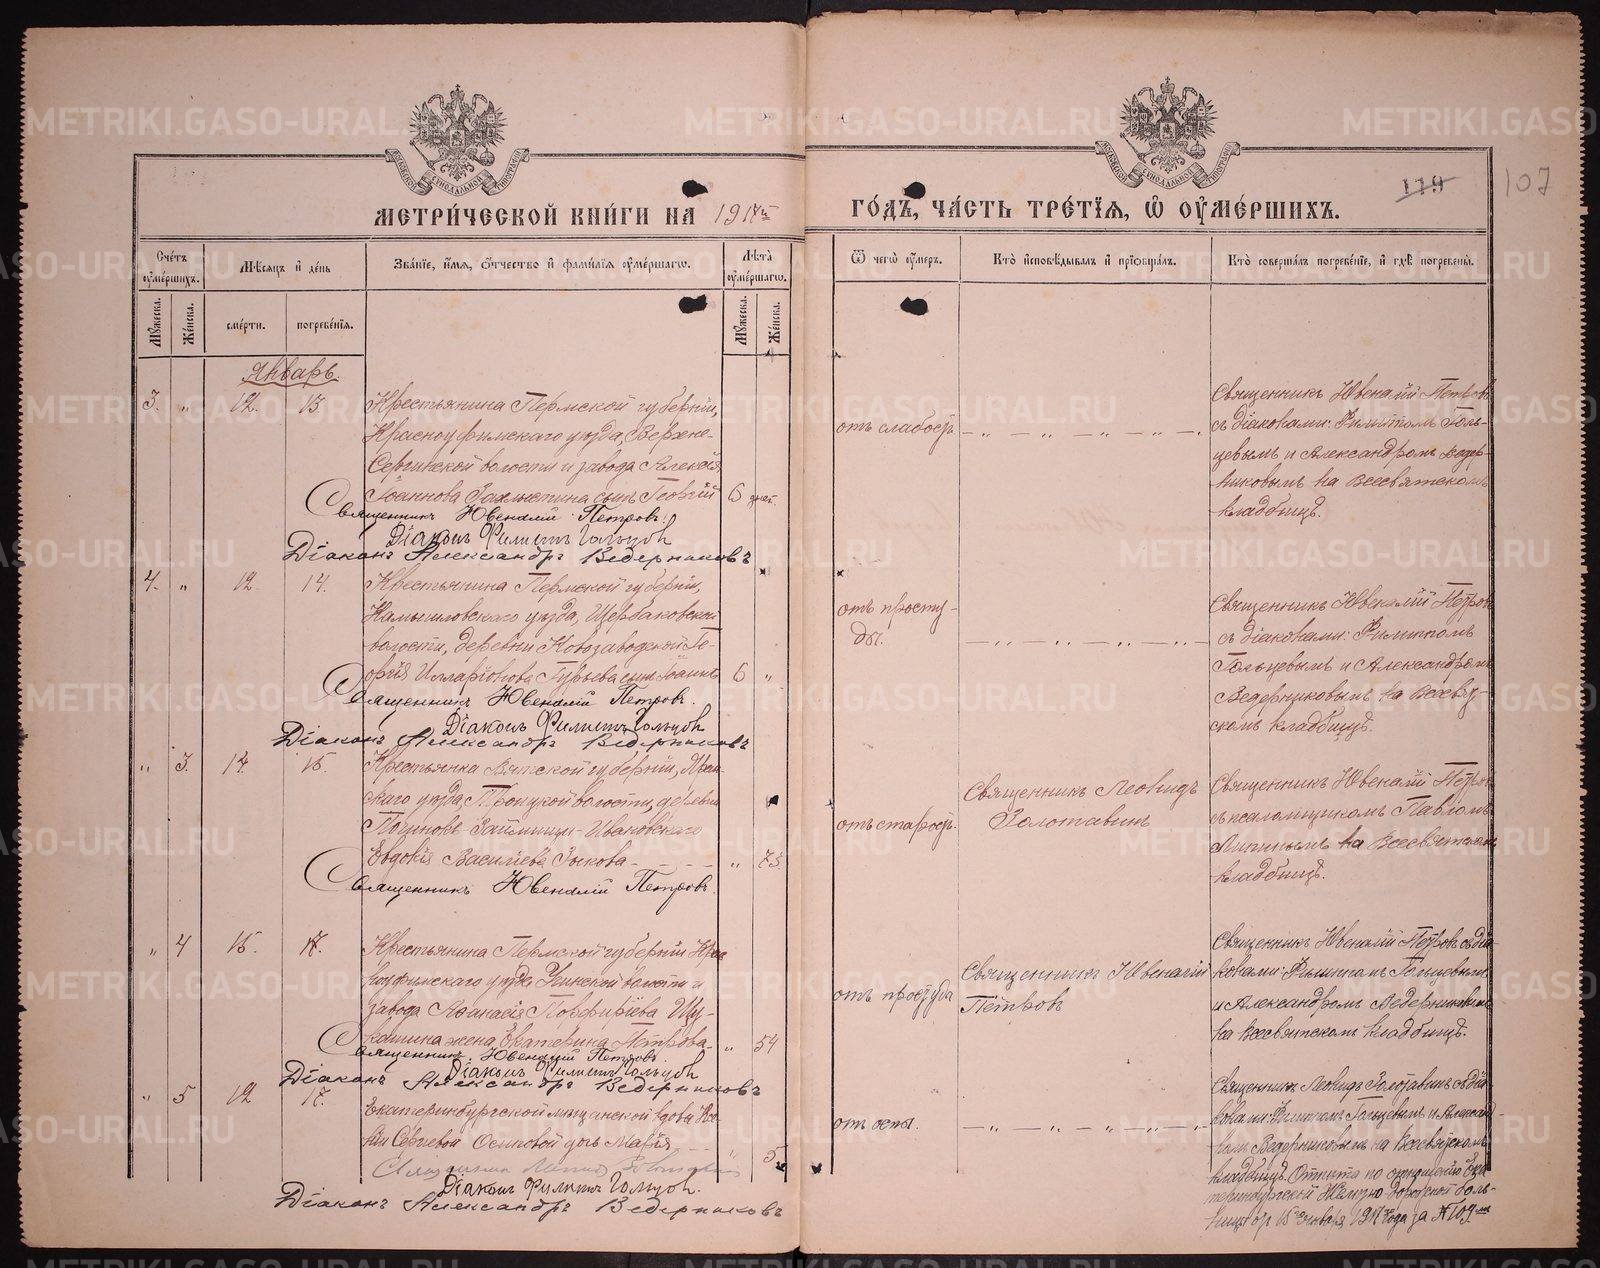 МЕТРИ́ЧЕСКОЙ КНИ́ГИ НА 1917й ГО́ДЪ, ЧА́СТЬ ТРЕ́ТЇѦ, Ѡ ОУ҆МЕ́РШИХЪ.
119 107
Сче́тъ оу҆ме́ршихъ.
Мѣ́сѧцъ и҆ де́нь
Зва́нїе, и҆́мѧ, ѻ҆́тчество и҆ фами́лїѧ оу҆ме́ршагѡ.
Лѣ́та оу҆ме́ршагѡ.
Ѿ чегѡ̀ оу҆́меръ.
Кто̀ и҆сповѣ́дывалъ и҆ прїѡбща́лъ.
Кто̀ соверша́лъ погребе́нїе, и҆ гдѣ̀ погребены̀.
Мꙋ́жеска.
Же́нска.
сме́рти.
погребе́нїѧ.
Мꙋ́жеска.
Же́нска.
Январь.
3. „ 12. 13.
Крестьянина Пермской губерніи,
Красноуфимскаго уѣзда, Верхне-
Сергинской волости и завода Алексія
Іоаннова сынъ Георгій 6 дней.
Священникъ Ювеналій Петровъ.
Діаконъ Филиппъ Гольцовъ
Діаконъ Александръ Ведерниковъ
отъ слабости
Священникъ Ювеналій Петровъ
съ діаконами: Филиппомъ Голь-
цевымъ и Александромъ Ведер-
никовымъ на Всесвятскомъ
кладбищѣ.
4. „ 12. 14.
Крестьянина Пермской губерніи,
Камышловскаго уѣзда, Щербаковской
волости, деревни Новозаводской Ге-
оргія Илларіонова Гурьева сынъ Іоаннъ 6 „
Священникъ Ювеналій Петровъ.
Діаконъ Филиппъ Гольцовъ
Діаконъ Александръ Ведерниковъ
отъ просту-
ды.
Священникъ Ювеналій Петровъ
съ діаконами: Филиппомъ
Гольцевымъ и Александромъ
Ведерниковымъ на Всесвят-
скомъ кладбищѣ.
„ 3. 14. 15.
Крестьянка Вятской губерніи,
скаго уѣзда, Троицкой волости, деревни
Займищи-Ивановскаго
Евдокія Васильева Зыкова „ 73.
Священникъ Ювеналій Петровъ.
отъ старости.
Священникъ Леонидъ
Золотавинъ
Священникъ Ювеналій Петровъ
съ псаломщикомъ Павломъ
на Всесвятскомъ
кладбищѣ.
„ 4 15. 17.
Крестьянина Пермской губерніи Крас-
ноуфимскаго уѣзда Уинской волости и
завода Афанасія Порфиріева
жена Екатерина Петрова „ 54
Священникъ Ювеналій Петровъ.
Діаконъ Филиппъ Гольцовъ
Діаконъ Александръ Ведерниковъ
отъ простуды
Священникъ Ювеналій
Петровъ
Священникъ Ювеналій Петровъ съ діа-
конами: Филиппомъ Гольцевымъ
и Александромъ Ведерниковымъ
на Всесвятскомъ кладбищѣ.
„ 5 12 17.
Екатеринбургской мѣщанской вдовы
Сергіевой Осиповой дочь Марія 5.
Священникъ Леонидъ Золотавинъ
Діаконъ Филиппъ Гольцовъ.
Діаконъ Александръ Ведерниковъ
отъ оспы.
Священникъ Леонидъ Золотавинъ съ діа-
конами: Филиппомъ Гольцевымъ и Алексан-
Ведерниковымъ на Всесвятскомъ
кладбищѣ. Отпѣта по отношенію Ека-
теринбургской Желѣзно-дорожной боль-
ницы отъ 15го Января 1917 года за № 109
METRIKI.GASO-URAL.RU